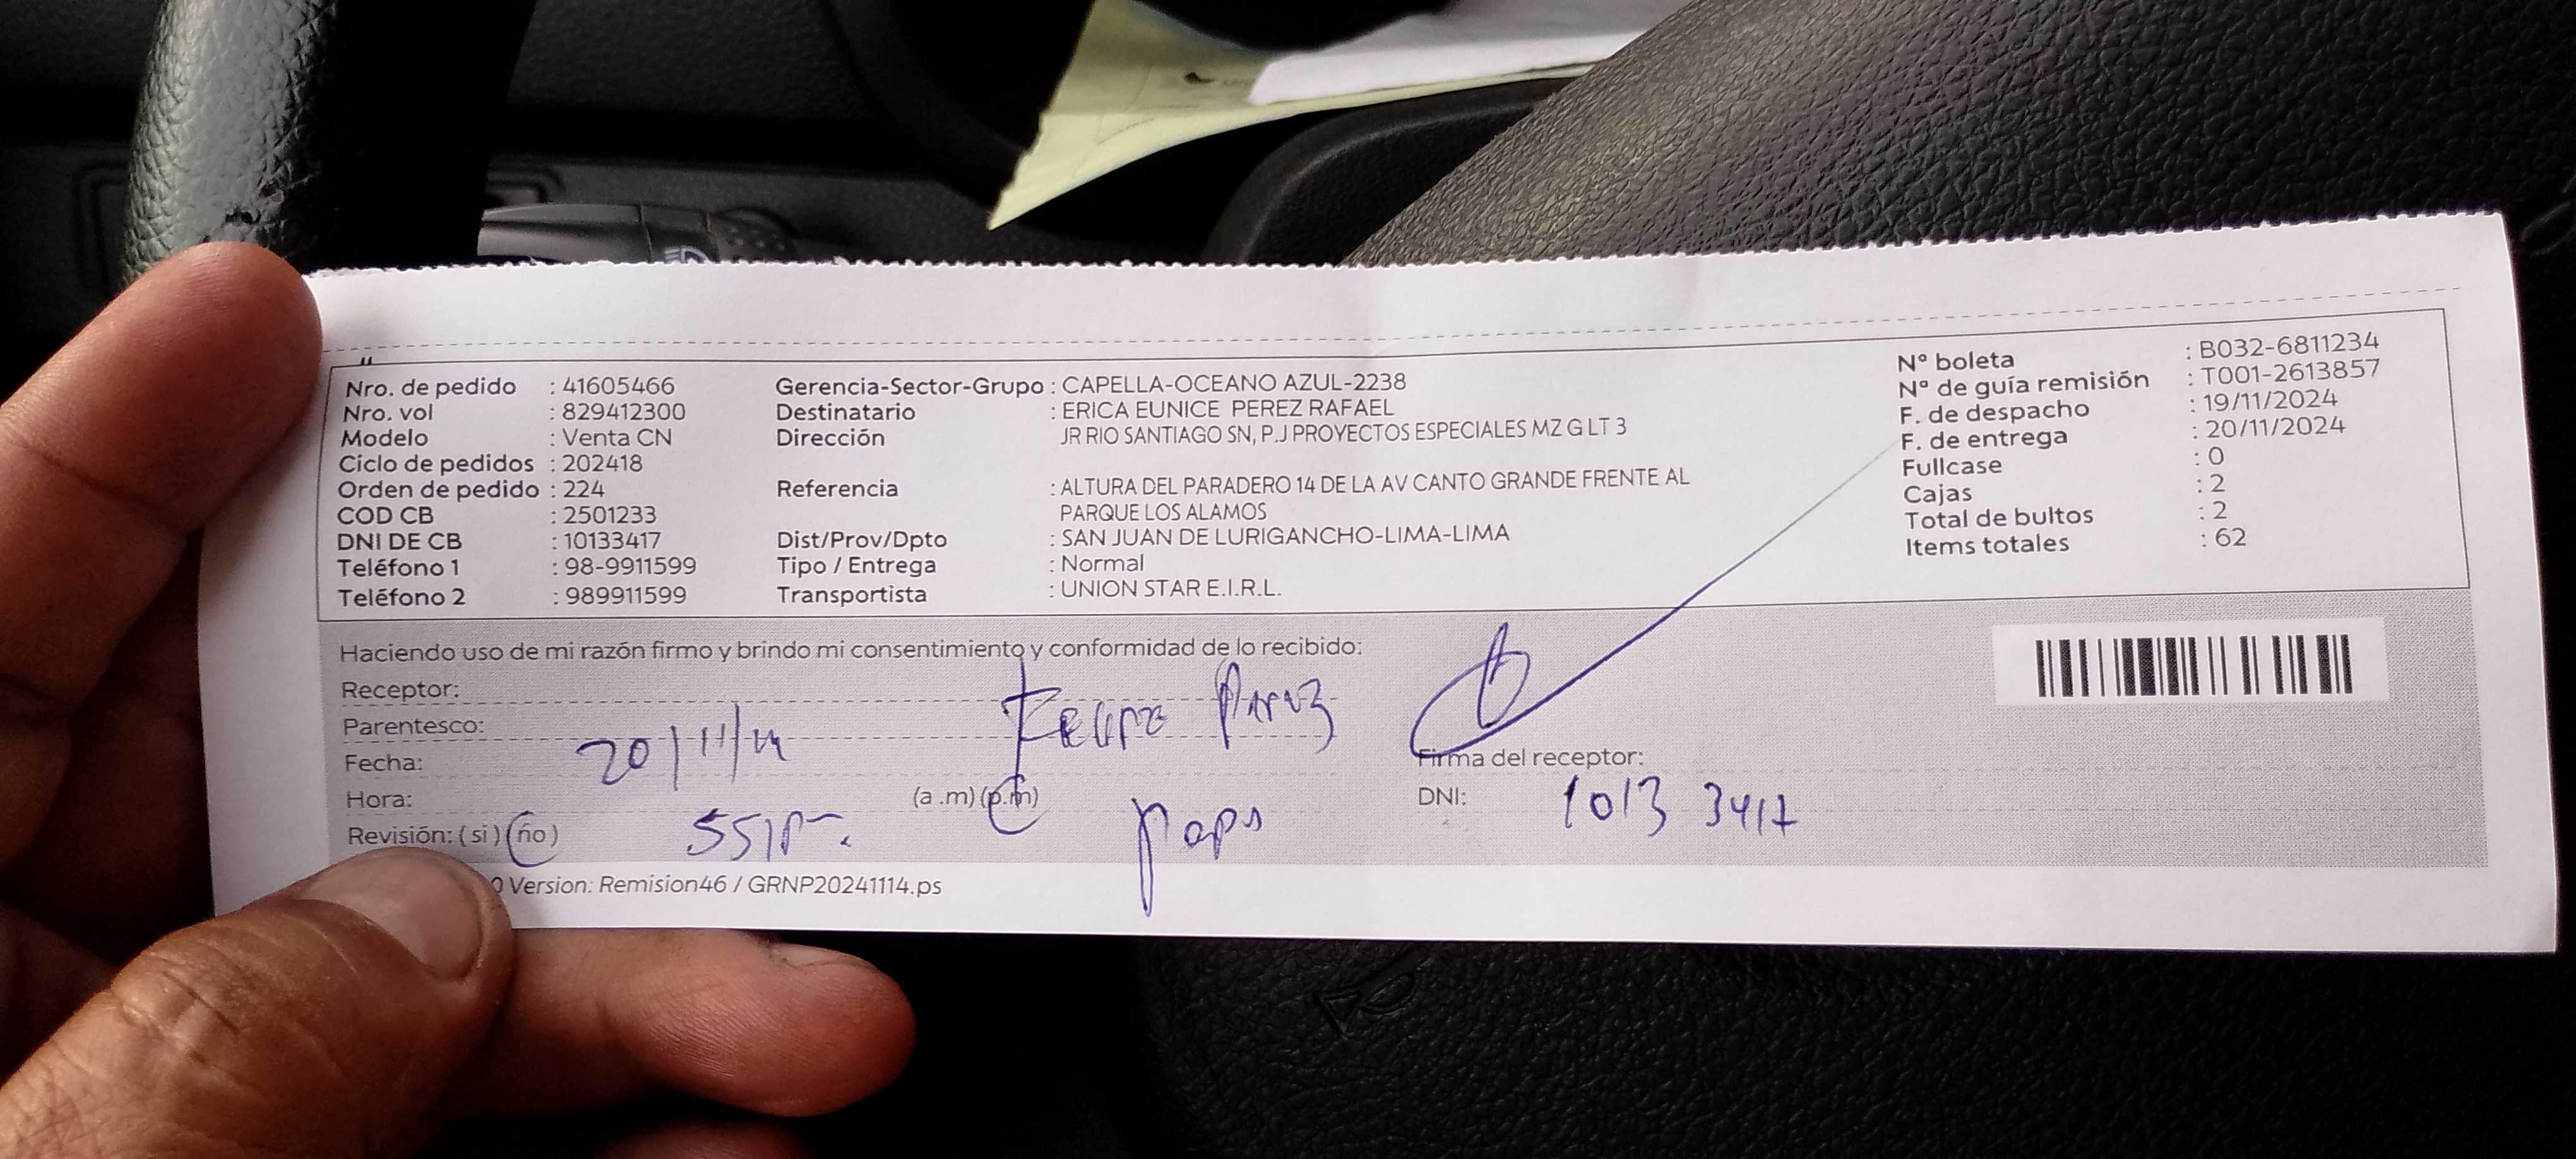 Nro. de pedido : 41605466
Nro. vol : 829412300
Modelo : Venta CN
Ciclo de pedidos : 202418
Orden de pedido : 224
COD CB : 2501233
DNI DE CB : 10133417
Teléfono 1 : 98-9911599
Teléfono 2 : 989911599
Gerencia-Sector-Grupo : CAPELLA-OCEANO AZUL-2238
Destinatario : ERICA EUNICE PEREZ RAFAEL
Dirección JR RIO SANTIAGO SN, P.J PROYECTOS ESPECIALES MZ G LT 3
Referencia : ALTURA DEL PARADERO 14 DE LA AV CANTO GRANDE FRENTE AL
PARQUE LOS ALAMOS
Dist/Prov/Dpto : SAN JUAN DE LURIGANCHO-LIMA-LIMA
Tipo / Entrega : Normal
Transportista : UNION STAR E.I.R.L.
N° boleta : B032-6811234
N° de guía remisión : T001-2613857
F. de despacho : 19/11/2024
F. de entrega : 20/11/2024
Fullcase : 0
Cajas : 2
Total de bultos : 2
Items totales : 62
Haciendo uso de mi razón firmo y brindo mi consentimiento y conformidad de lo recibido:
Receptor:
Parentesco:
Fecha: 20/11/24
Hora: (a .m) (p.m)
Revisión: ( si ) (no )
Perez
Firma del receptor:
DNI: 1013 3417
0 Version: Remision46 / GRNP20241114.ps